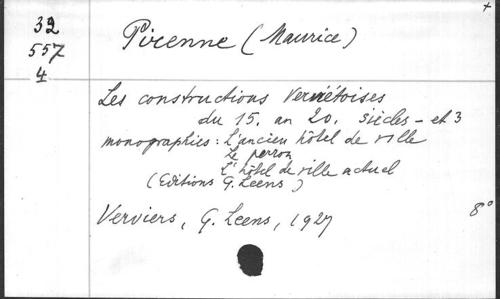 +
32
557
4
Pirenne (Maurice)
Les constructions Verviétoises
du 15. au 20. siècles - et 3
monographies: L'ancien hôtel de ville
Le perron
L'hôtel de ville actuel
(Editions G. Leens)
Verviers, G. Leens, 1927
8°